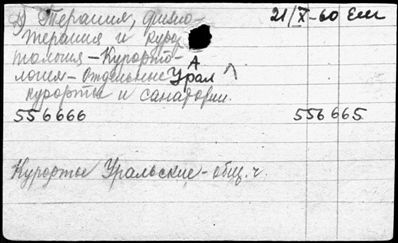 Терапия, физио- 21/X-60
терапия и куро
тология-Курорто-
логия-отдельные Урал А
курорты и санатории.
556666 556665
Курорты Уральские-общ. ч.